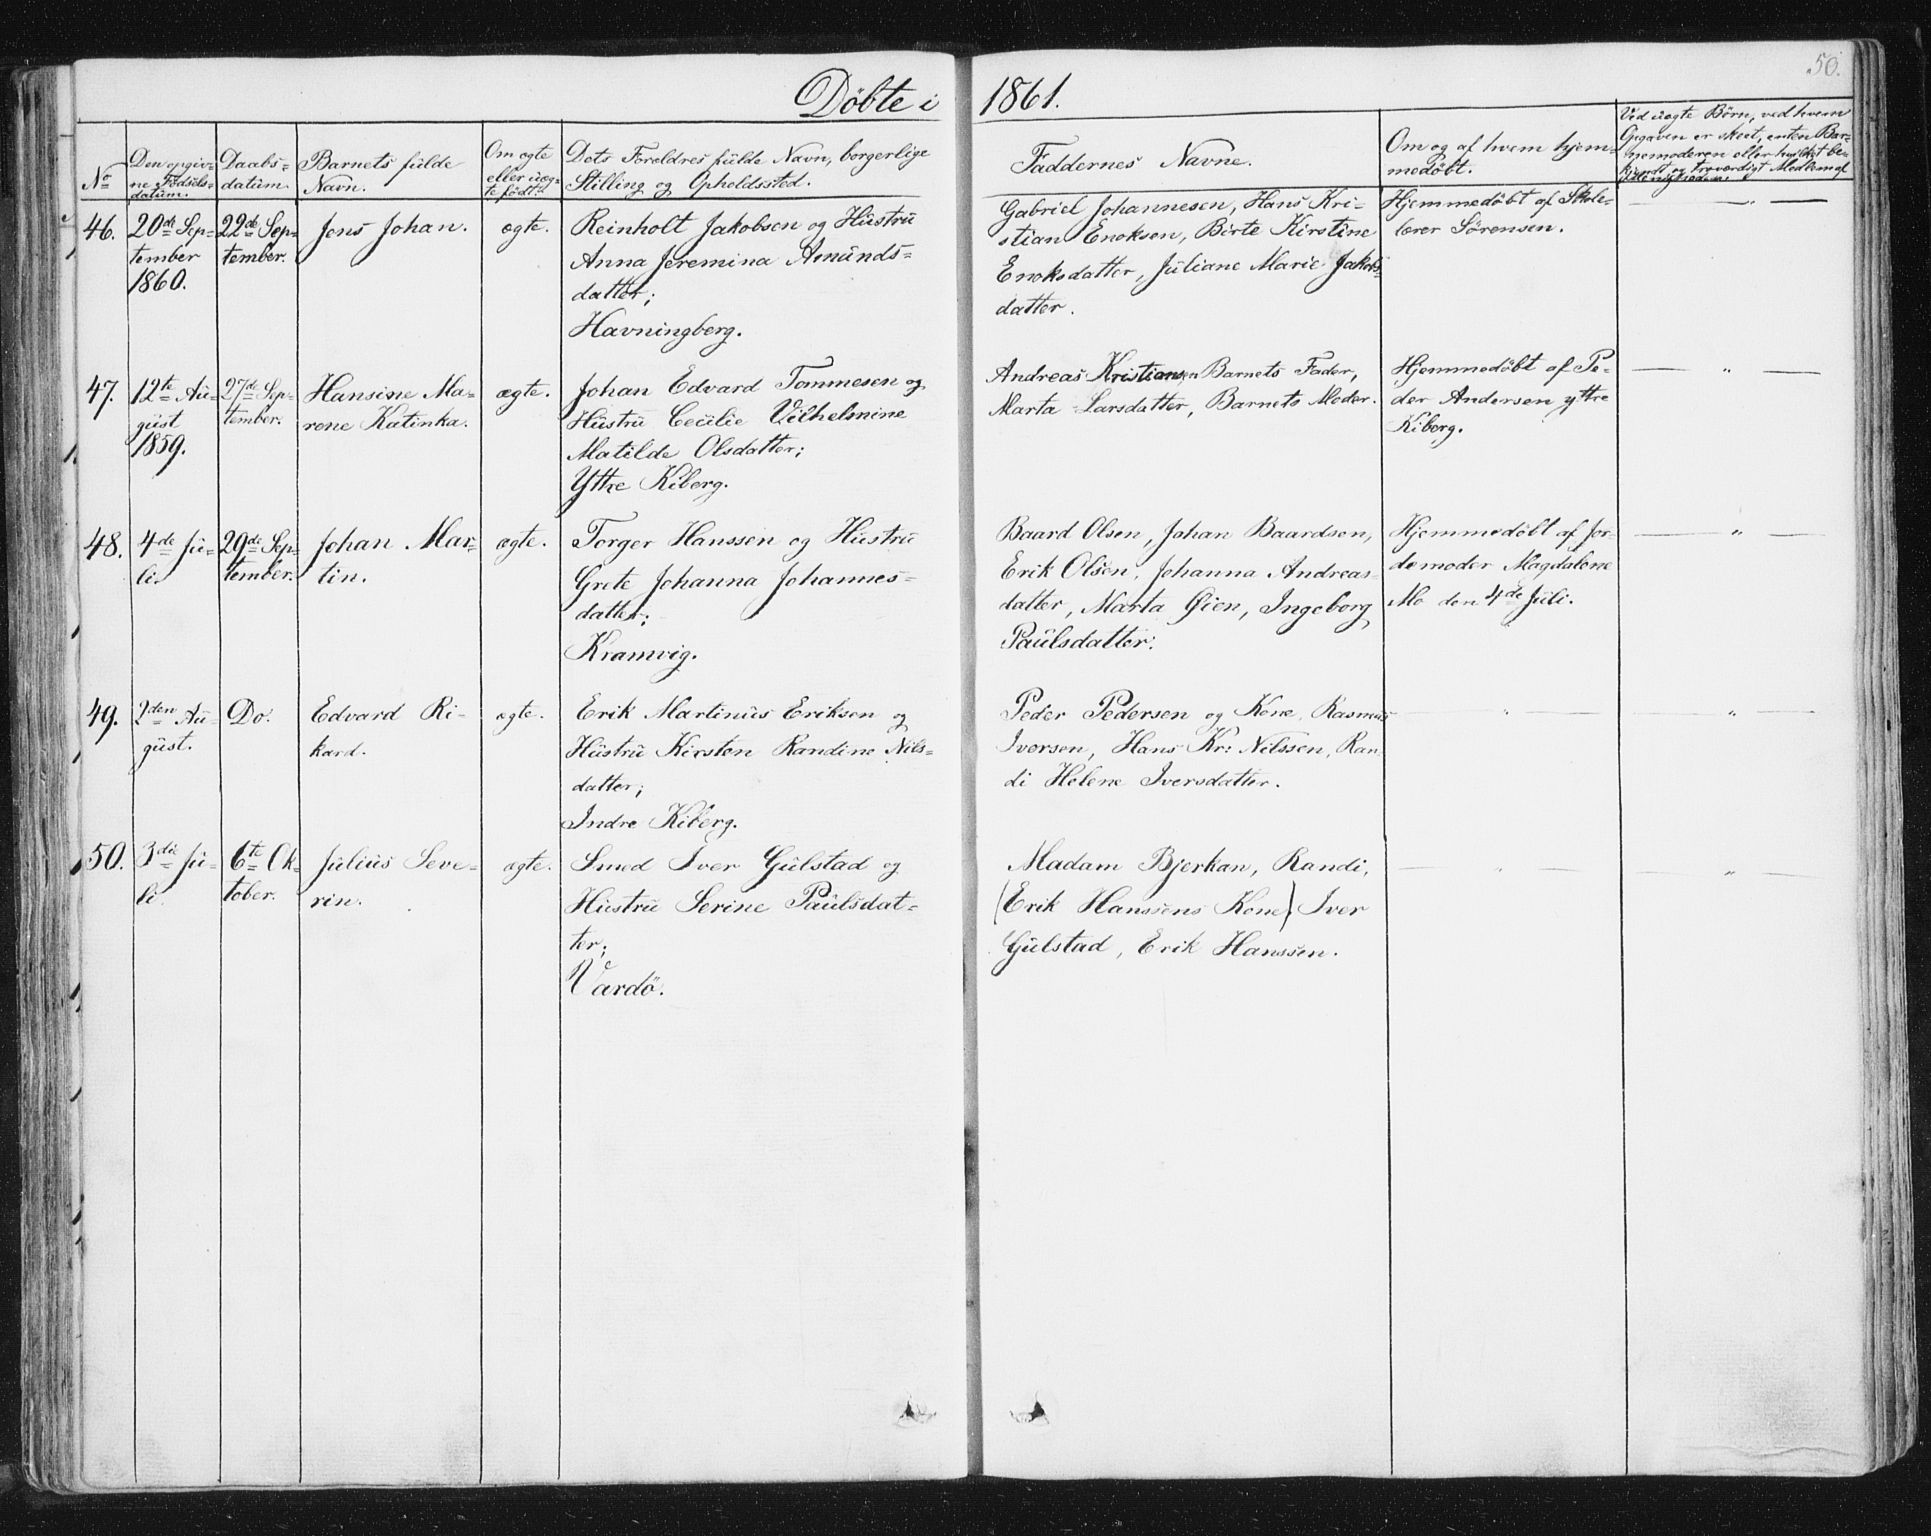 50.
Döbte i 1861.
No
Den opgiv-
ne Födsels-
datum.
Daabs-
datum.
Barnets fulde
Navn.
Om ægte
eller uæg-
te födt.
Dets Foreldres fulde Navn, borgerlige
Stilling og Opholdssted.
Faddernes Navne.
Om og af hvem hjem-
medöbt.
Ved uægte Börn, ved hvem
Opgaven er skeet, enten Bar-
nemoderen eller hvilket be-
kjendt og troværdigt Medlem af
Menigheden.
46.
20de Sep-
tember
1860.
22de Sep-
tember.
Jens Johan.
ægte.
Reinholt Jakobsen og Hustru
Anna Jeremina Amunds-
datter;
Havningberg.
Gabriel Johannesen, Hans Kri-
stian Enoksen, Birte Kirstine
Enoksdatter, Juliane Marie Jakobs-
datter.
Hjemmedöbt af Skole-
lærer Sörensen.
— " —
47.
12te Au-
gust
1859.
27de Sep-
tember.
Hansine Ma-
rene Katinka.
ægte.
Johan Edvard Tommesen og
Hustru Cecilie Vilhelmine
Matilde Olsdatter;
Yttre Kiberg.
Andreas Kristiansen Barnets Fader,
Marta Larsdatter, Barnets Moder.
Hjemmedöbt af Pe-
der Andersen yttre
Kiberg.
— " —
48.
4de Ju-
li.
29de Sep-
tember.
Johan Mar-
tin.
ægte.
Torger Hanssen og Hustru
Grete Johanna Johannes-
datter;
Kramvig.
Baard Olsen, Johan Baardsen,
Erik Olsen, Johanna Andreas-
datter, Marta Öien, Ingeborg
Paulsdatter.
Hjemmedöbt af Jor-
demoder Magdalene
Mo den 4de Juli.
— " —
49.
2den Au-
gust.
Do.
Edvard Ri-
kard.
ægte.
Erik Martinus Eriksen og
Hustru Kirsten Randine Nils-
datter;
Indre Kiberg.
Peder Pedersen og Kone, Rasmus
Iversen, Hans Kr: Nilssen, Ran
di Helene Iversdatter.
— " —
— " —
50.
3die Ju-
li.
6te Ok-
tober.
Julius Seve-
rin.
ægte.
Smed Iver Gulstad og
Hustru Serine Paulsdat-
ter;
Vardö.
Madam Bjerkan, Randi,
(Erik Hanssens Kone) Iver
Gulstad, Erik Hanssen.
— " —
— " —